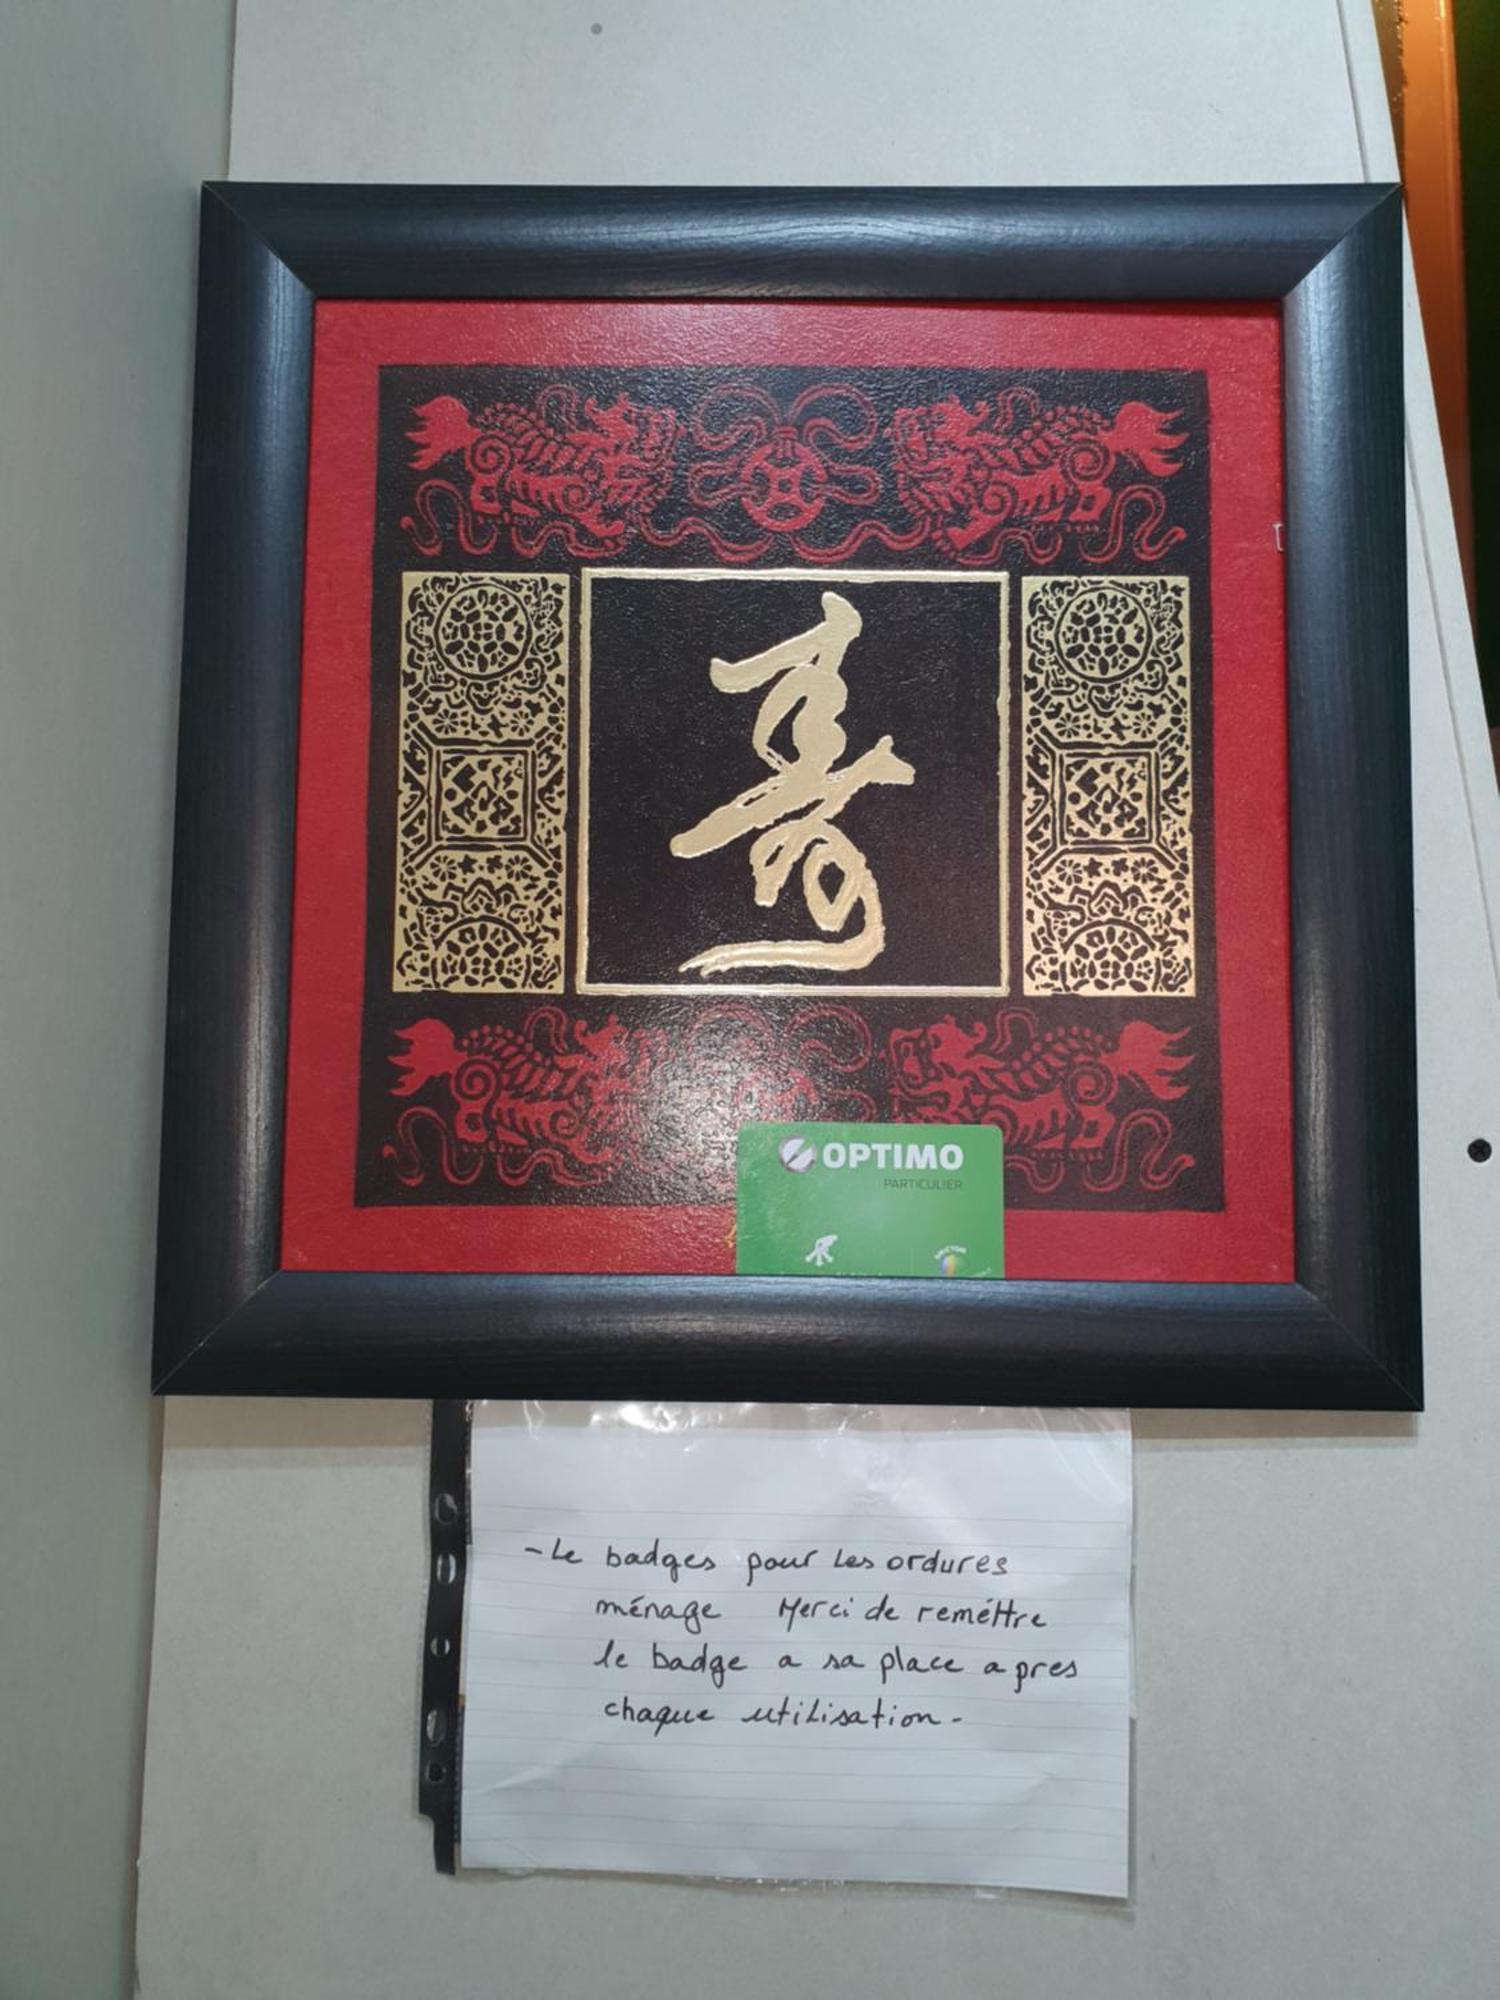 寿
OPTIMO
PARTICULIER
- Le badges pour Les ordures
ménage Merci de reméttre
le badge a sa place apres
chaque utilisation -